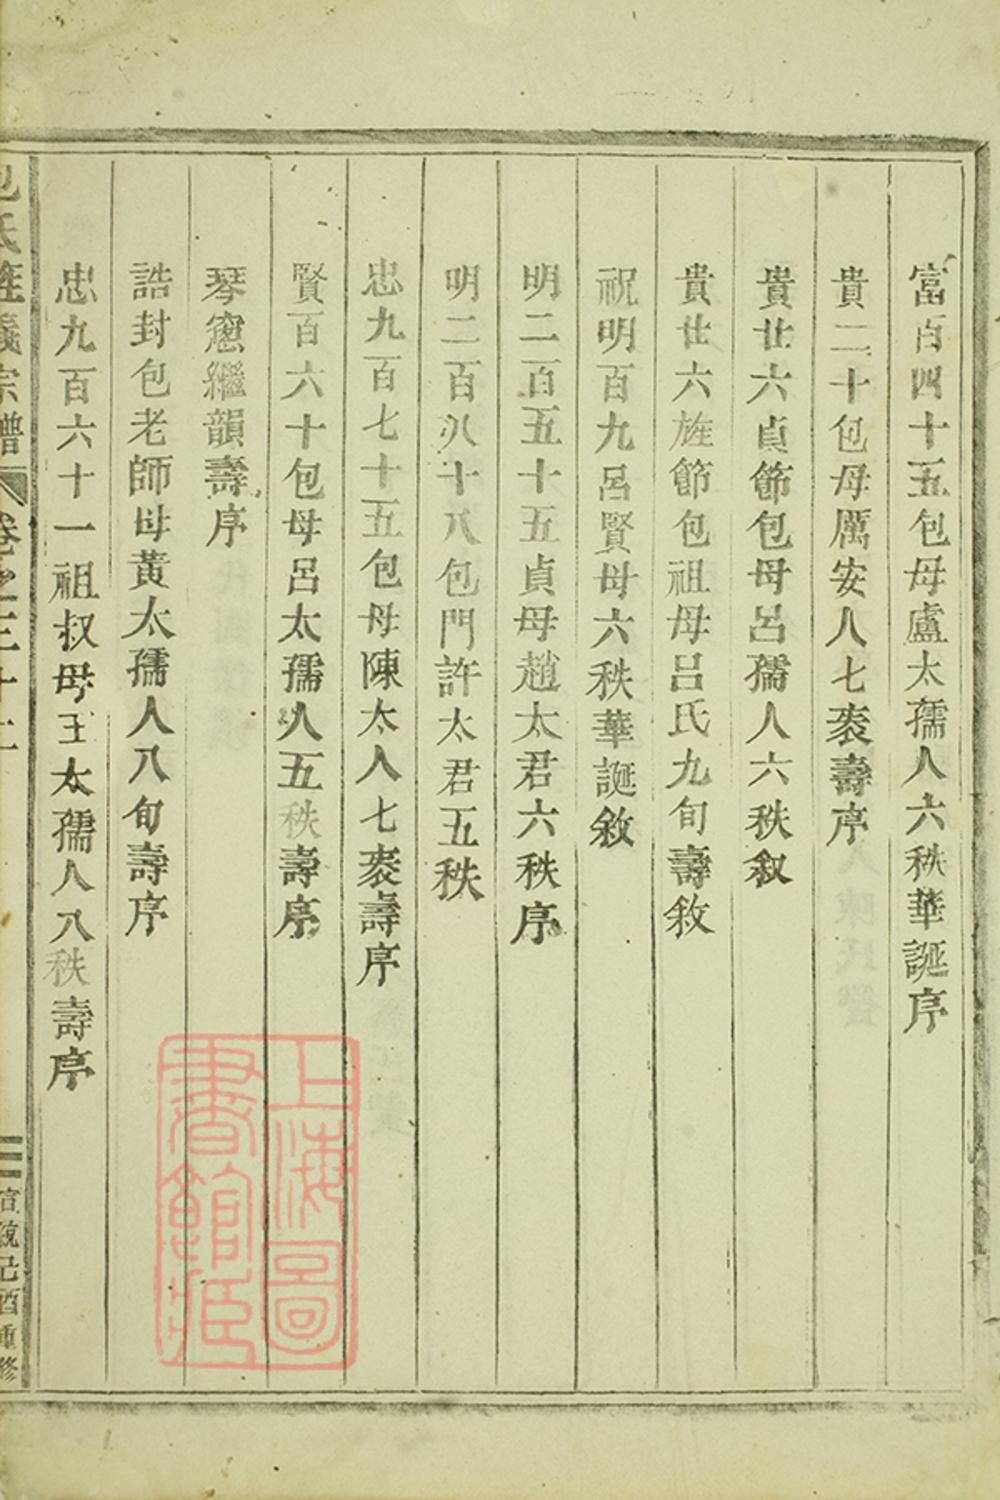 富百四十五包母盧太孺人六秩華誕序
貴二十包母厲安人七袠壽序
貴廿六貞節包母呂孺人六秩叙
貴廿六旌節包祖母呂氏九旬壽敘
祝明百九呂賢母六秩華誕敘
明二百五十五貞母趙太君六秩序
明二百八十八包門許太君五秩
忠九百七十五包母陳太人七袠壽序
賢百六十包母呂太孺人五秩壽序
琴窻繼韻壽序
誥封包老師母黃太孺人八旬壽序
忠九百六十一祖叔母王太孺人八秩壽序
包氏旌義宗譜
卷之三十二
宣統己酉重修
上海圖書館藏